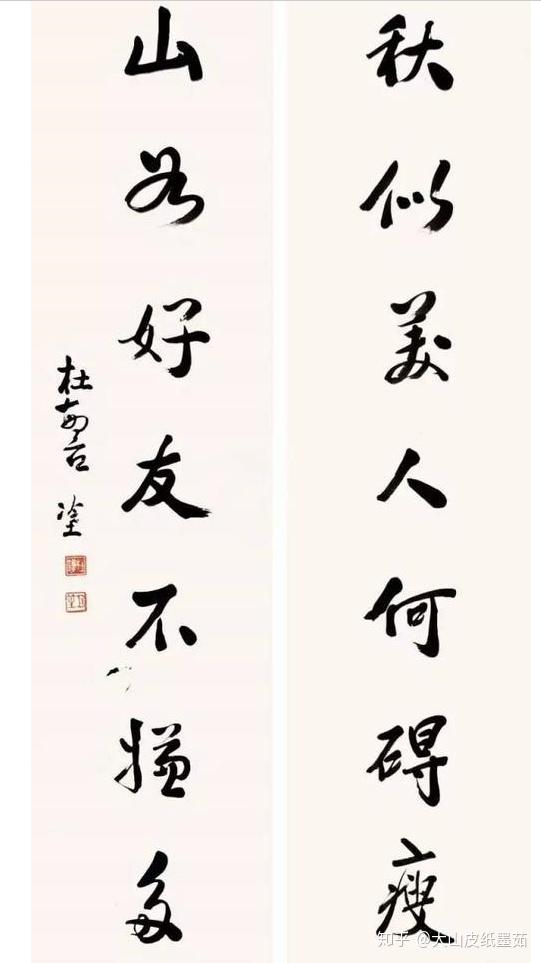 秋似美人何碍瘦
山若好友不嫌多
杜
知乎 @大山皮纸墨茹